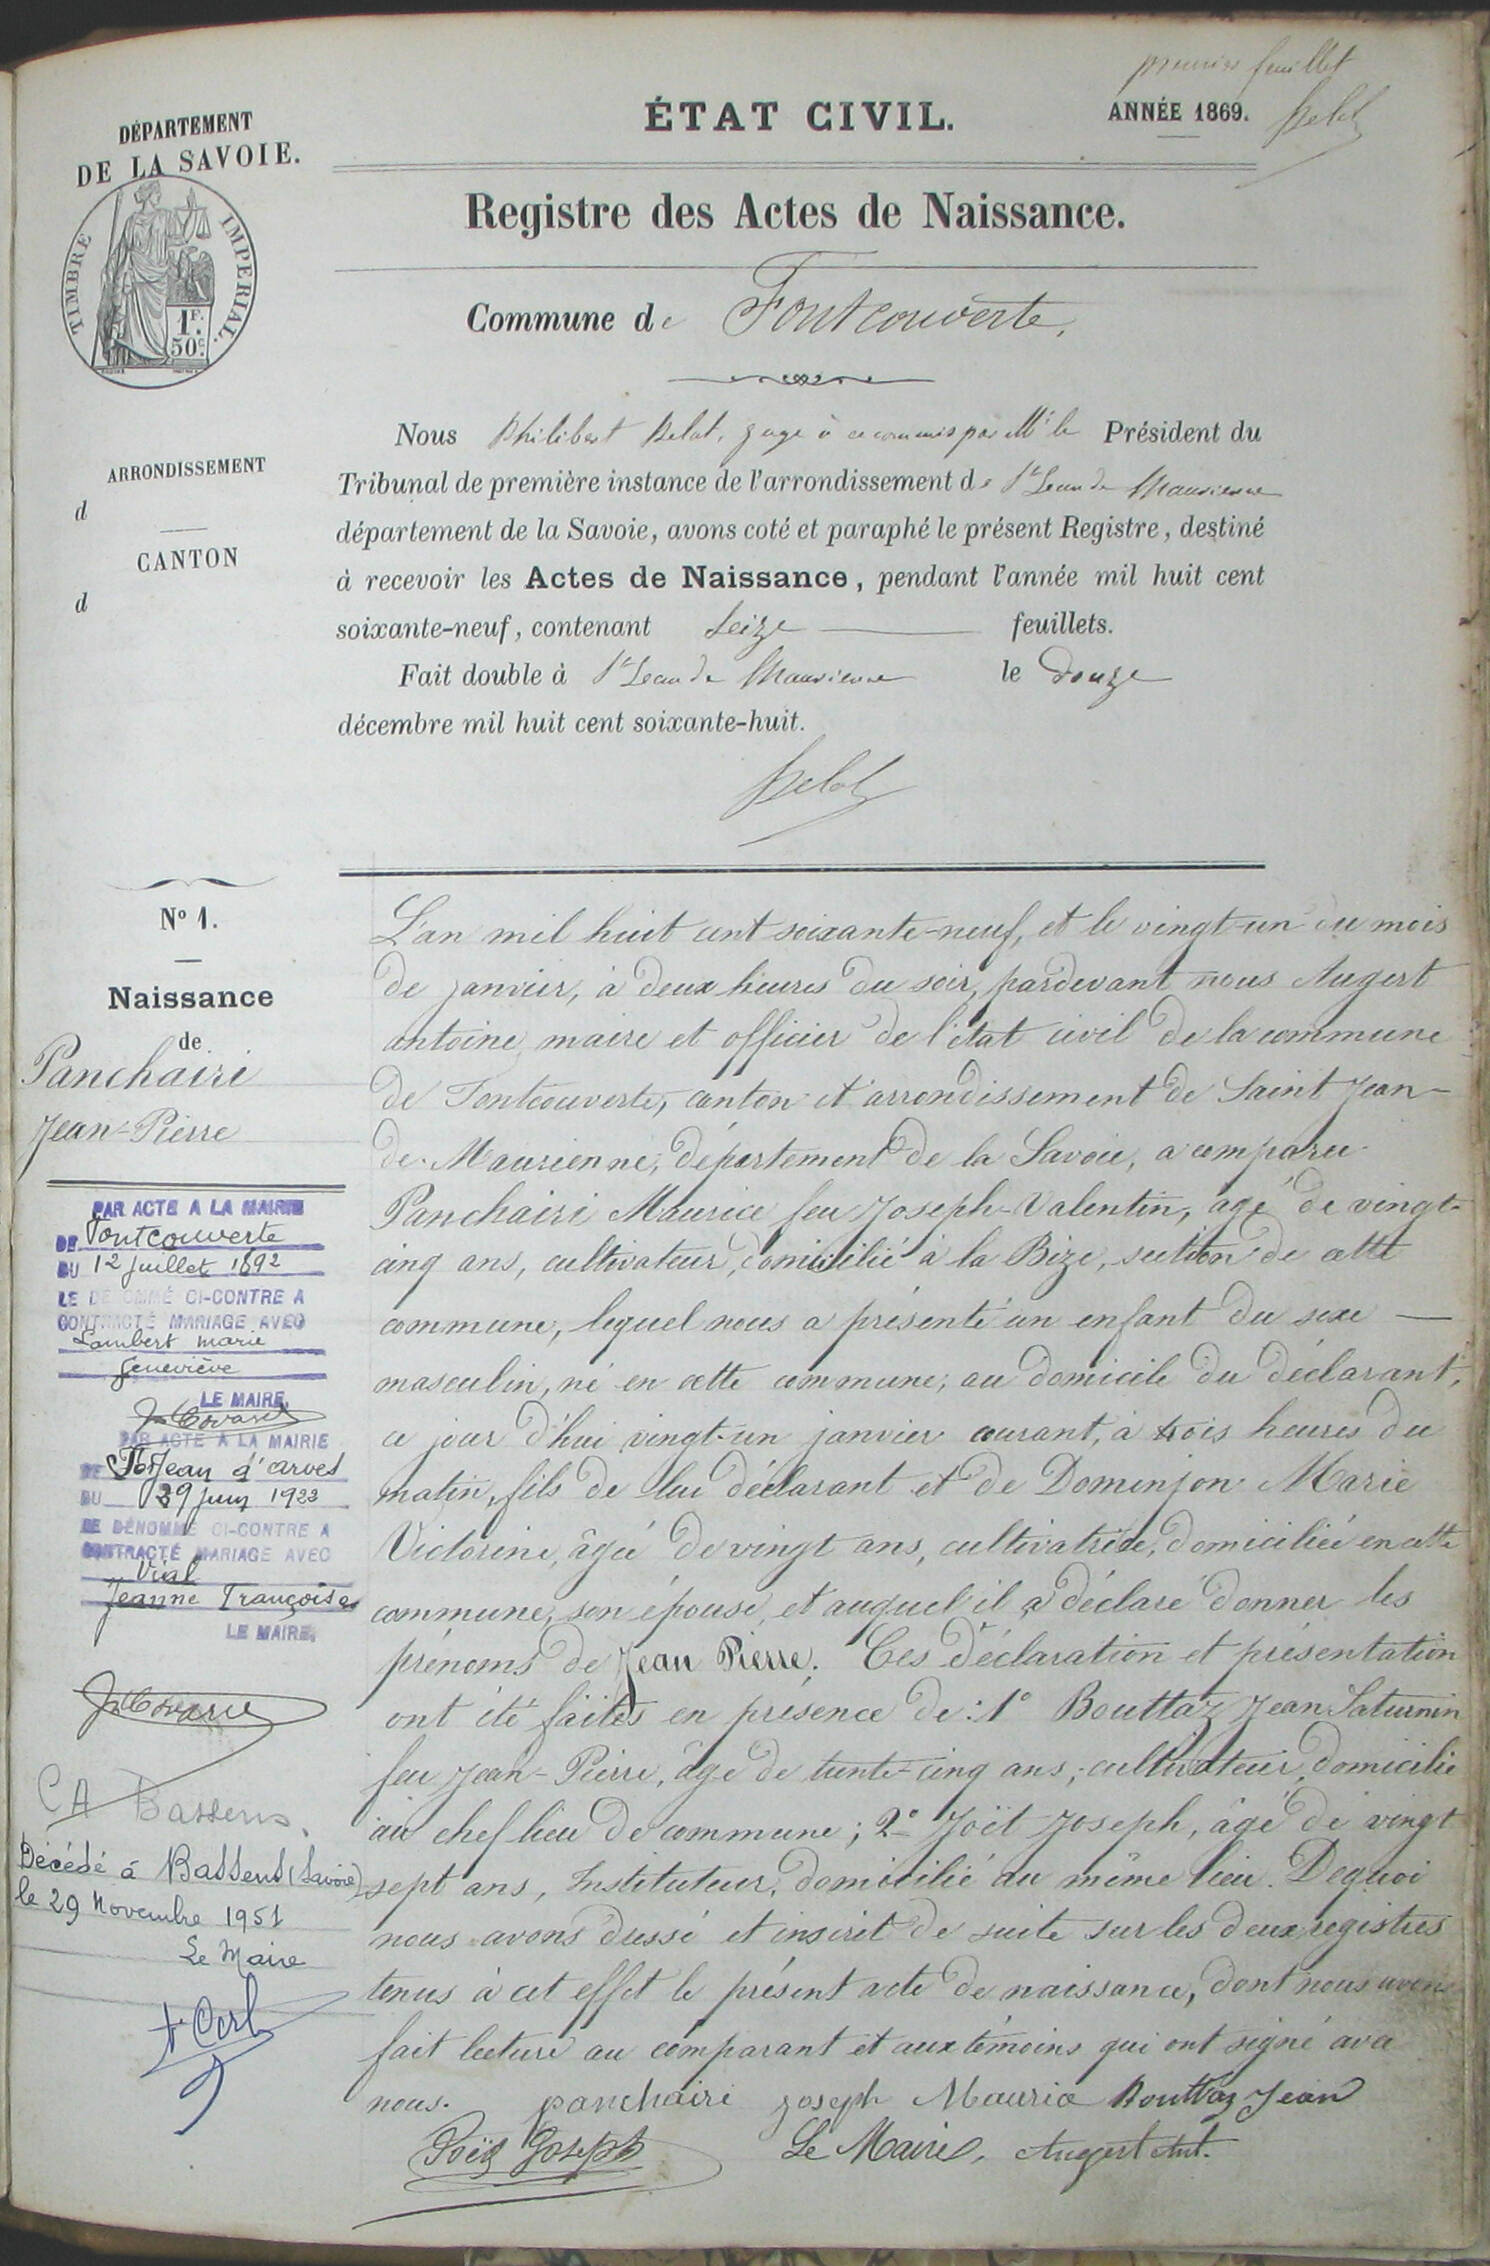 premier feuillet
ÉTAT CIVIL.
ANNÉE 1869.
Belat
DÉPARTEMENT
DE LA SAVOIE.
TIMBRE IMPERIAL.
1F.
50c.
Registre des Actes de Naissance.
Commune de Fontcouverte,
Nous Philibert Belat, juge à ce commis par Mr le Président du
Tribunal de première instance de l'arrondissement de St Jean de Maurienne
département de la Savoie, avons coté et paraphé le présent Registre, destiné
à recevoir les Actes de Naissance, pendant l'année mil huit cent
soixante-neuf, contenant Seize feuillets.
Fait double à St Jean de Maurienne le Douze
décembre mil huit cent soixante-huit.
Belat
ARRONDISSEMENT
d
CANTON
d
No 1.
Naissance
de
Panchairi
Jean-Pierre
PAR ACTE A LA MAIRIE
DE Fontcouverte
DU 12 juillet 1892
LE DÉNOMMÉ CI-CONTRE A
CONTRACTÉ MARIAGE AVEC
Lambert marie
Geneviève
LE MAIRE,
PAR ACTE A LA MAIRIE
DE St Jean d'arves
DU 29 juin 1923
LE DÉNOMMÉ CI-CONTRE A
CONTRACTÉ MARIAGE AVEC
Vial
Jeanne Françoise
LE MAIRE,
CA Bassens.
Décédé à Bassens (Savoie)
le 29 Novembre 1951
Le Maire
L'an mil huit cent soixante-neuf, et le vingt-un du mois
de janvier, à deux heures du soir, pardevant nous Augert
antoine, maire et officier de l'état civil de la commune
de Fontcouverte, canton et arrondissement de Saint Jean-
de-Maurienne, département de la Savoie, a comparu
Panchairi Maurice feu Joseph-Valentin, âgé de vingt-
cinq ans, cultivateur, domicilié à la Bize, section de cette
commune, lequel nous a présenté un enfant du sexe —
masculin, né en cette commune, au domicile du déclarant,
ce jour d'hui vingt-un janvier courant, à trois heures du
matin, fils de lui déclarant et de Dominjon Marie
Victorine, âgée de vingt ans, cultivatrice, domiciliée en cette
commune, son épouse, et auquel il a déclaré donner les
prénoms de Jean Pierre. Ces déclaration et présentation
ont été faites en présence de: 1° Bouttaz Jean Saturnin
feu Jean-Pierre, âgé de trente-cinq ans, cultivateur, domicilié
au chef lieu de commune; 2° Joët Joseph, âgé de vingt
sept ans, Instituteur, domicilié au même lieu. Dequoi
nous avons dressé et inscrit de suite sur les deux registres
tenus à cet effet le présent acte de naissance, dont nous avons
fait lecture au comparant et aux témoins qui ont signé avec
nous. panchairi joseph Maurice Bouttaz Jean
Joët Joseph Le Maire, Augert Ant.